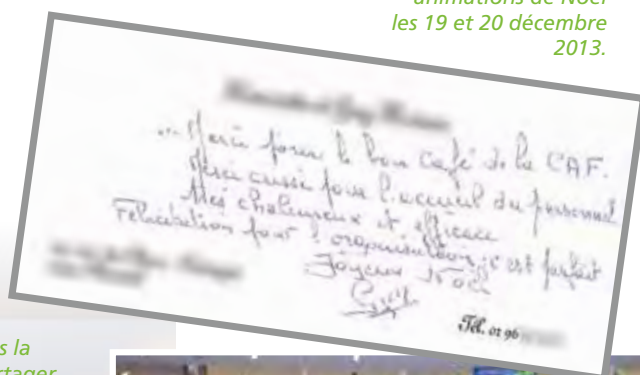 animations de Noël
les 19 et 20 décembre
2013.
... Merci pour le bon café de la CAF.
Merci aussi pour l'accueil du personnel
très chaleureux et efficace
Félicitation pour l'organisation, c'est parfait
Joyeux Noël
Tél. 02 96
s la
rtager